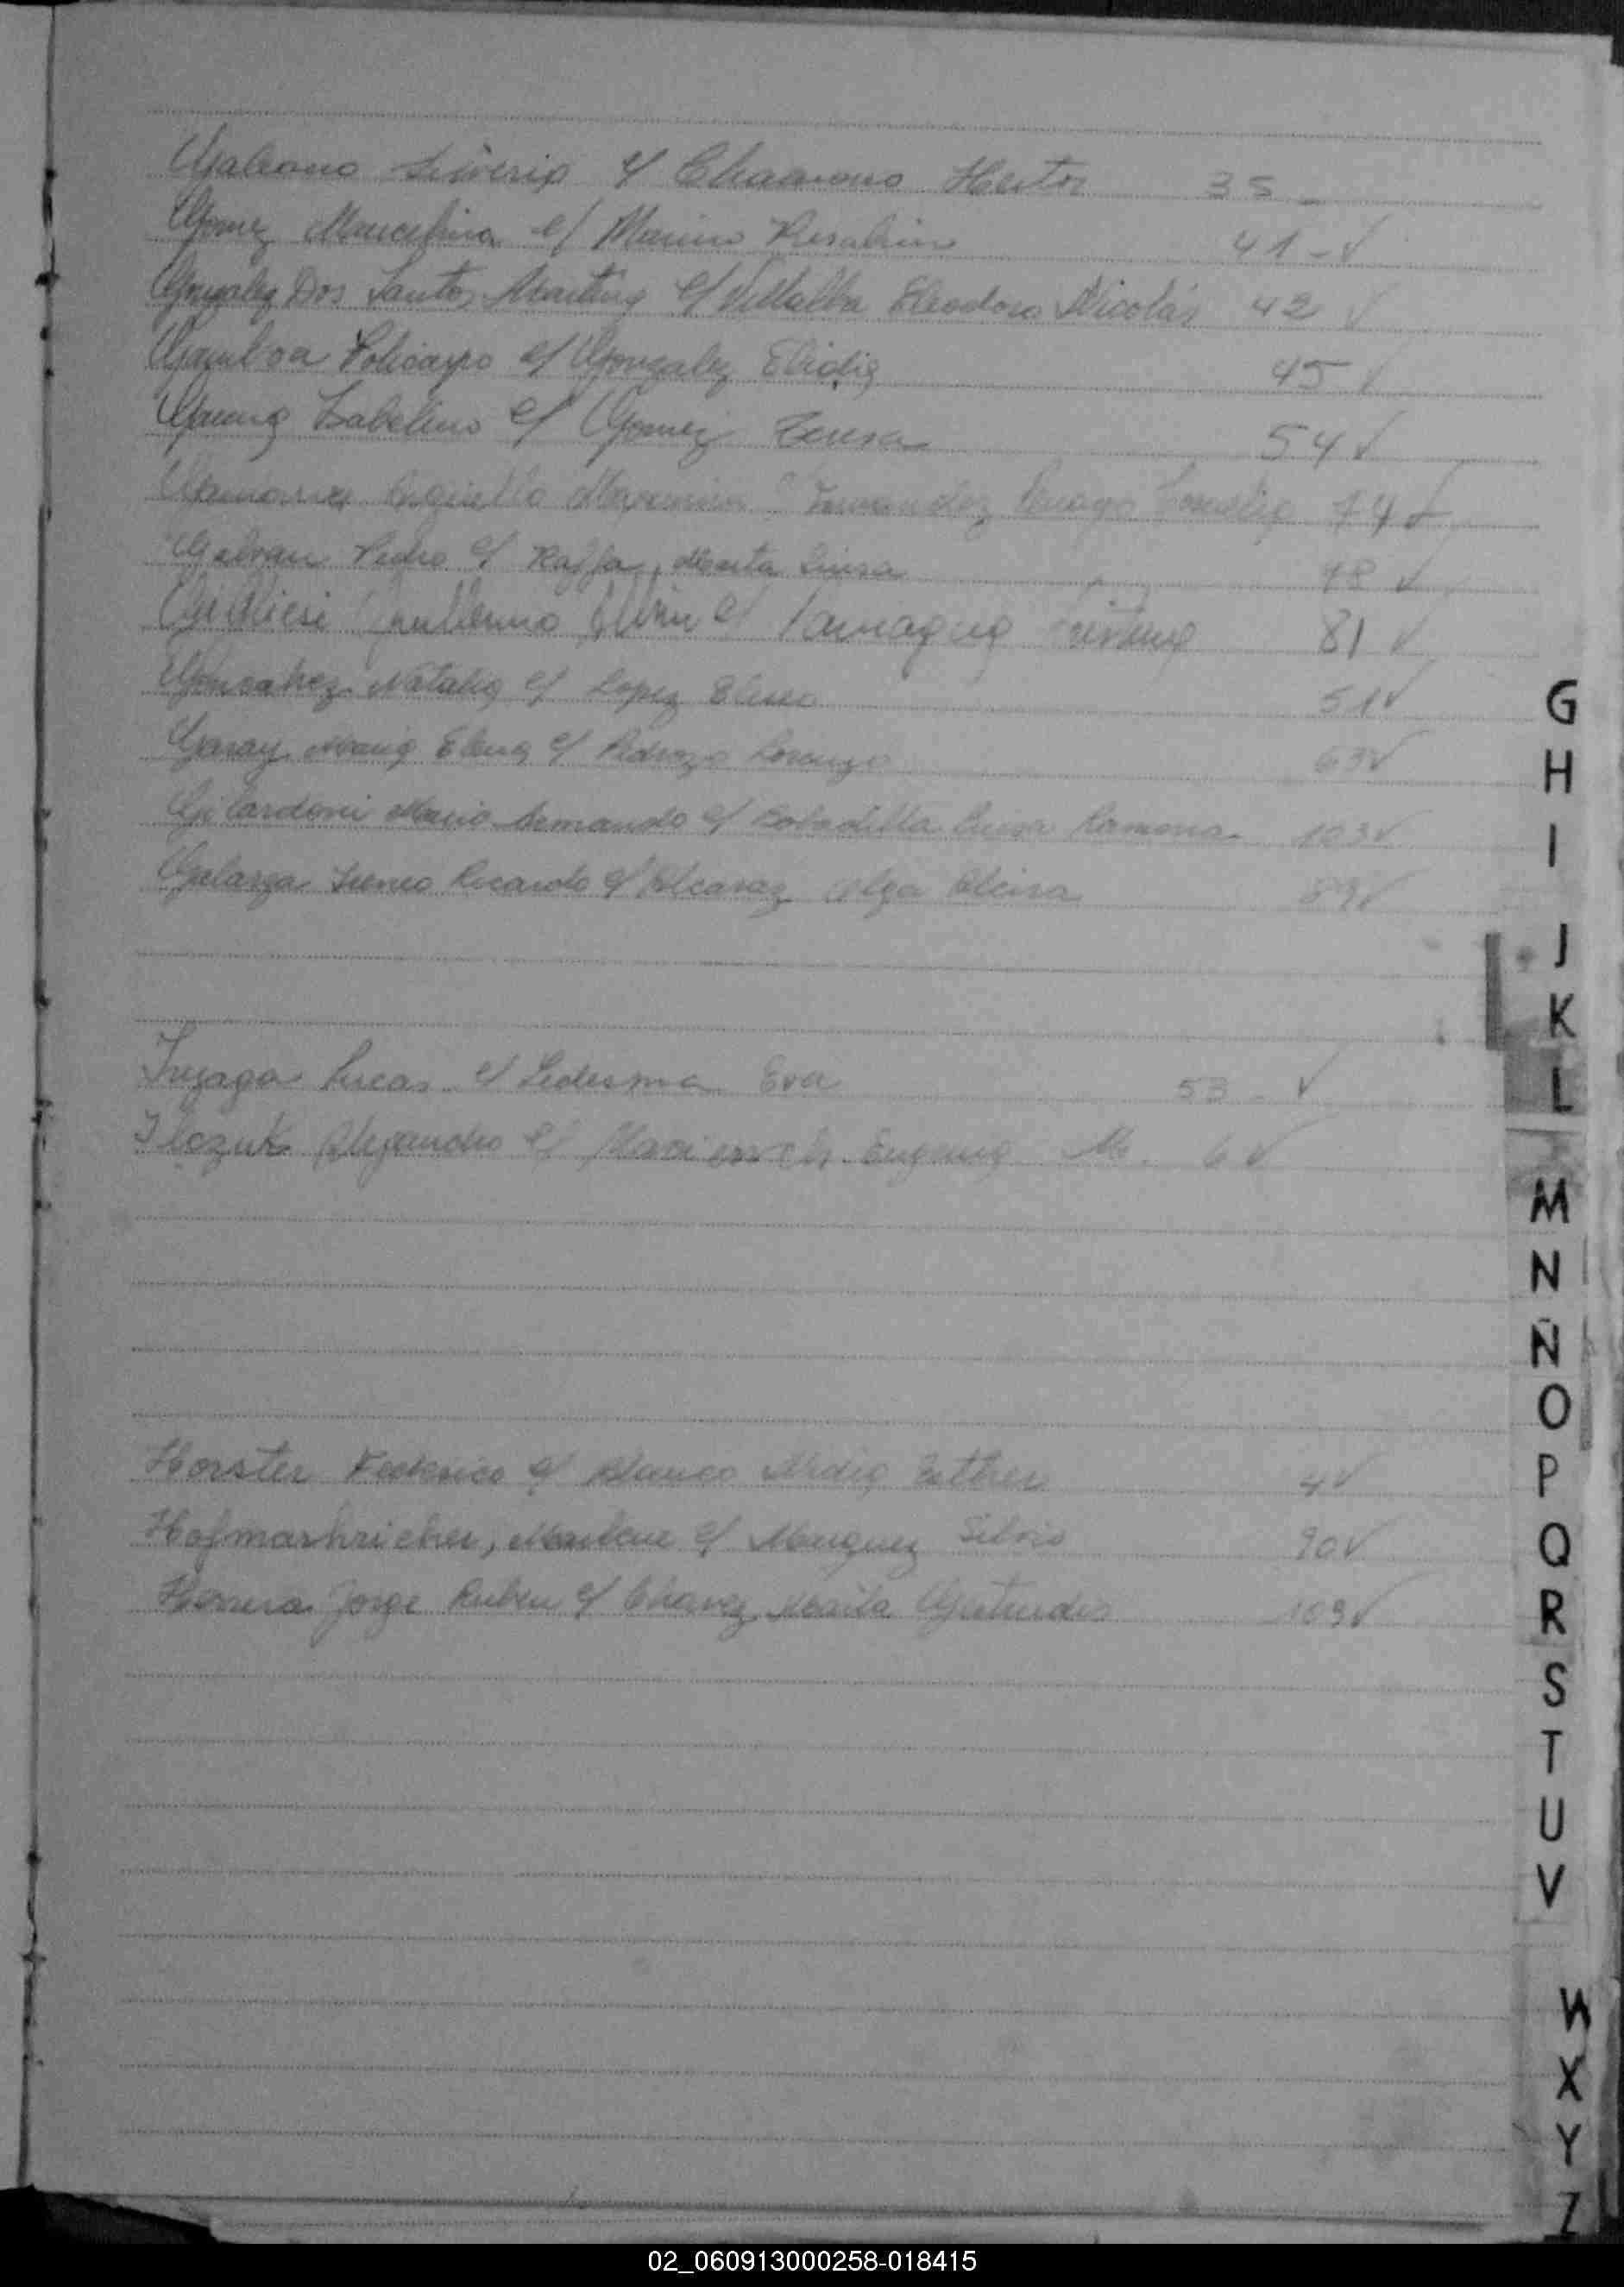 Galeano Silverio c/ Chamorro Hector 35 -
Gomez Marcelina c/ Marin 41 - ✓
Gonzalez Dos Santos Martina c/ Villalba Eleodoro Nicolás 42 ✓
Gamboa Policarpo c/ Gonzalez Elidia 45 ✓
c/ Gomez Teresa 54 ✓
Maximina Fernandez 74 ✓
Galvan Pedro c/ Raffa, Marta Luisa 78 ✓
Guillermo c/ Paniagua 81 ✓
Gonzalez Natalia c/ Lopez Eliseo 51 ✓
Garay Maria Elena c/ Pedrozo Lorenzo 63 ✓
Gilardoni Mario Armando c/ Bobadilla Luisa Ramona 103 ✓
Galarza Ireneo Ricardo c/ Alcaraz Olga Alcira 89 ✓
Lucas c/ Ledesma Eva 53 - ✓
Ilczuk Alejandro c/ Eugenia M. 6 ✓
Horster Federico c/ Blanco Nidia Esther 4 ✓
Hofmarkricher, Marlene c/ Marquez Silvio 90 ✓
Herrera Jorge Ruben c/ Chavez Maria Gertrudis 109 ✓
G
H
I
J
K
L
M
N
Ñ
O
P
Q
R
S
T
U
V
W
X
Y
Z
02_060913000258-018415